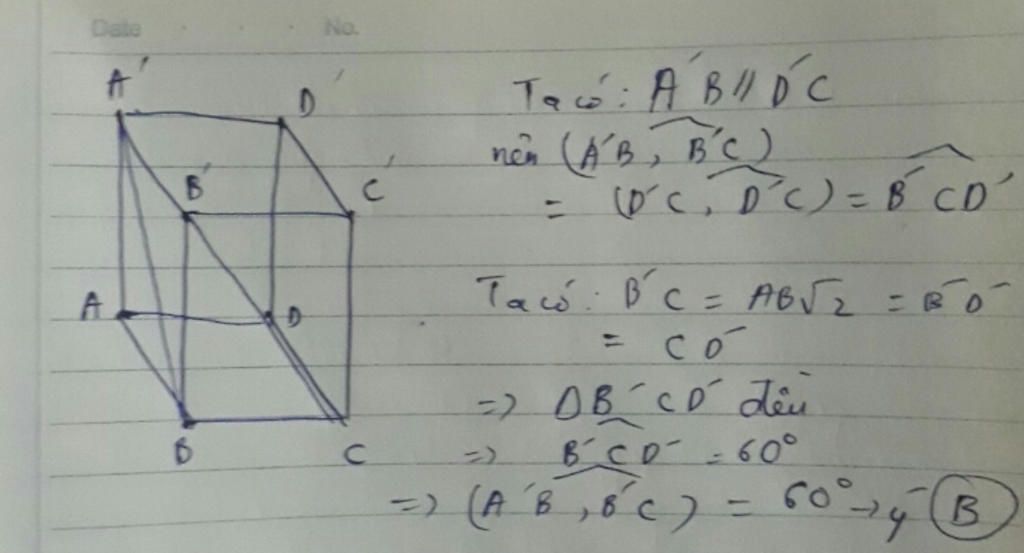 Date No.
A' D'
B' C'
A D
B C
Ta có: A'B // D'C
nên (A'B, B'C)
= (D'C, D'C) = B'CD'
Ta có: B'C = AB√2 = B'D'
= CD'
=> ΔB'CD' đều
=> B'CD' = 60°
=> (A'B, B'C) = 60° → ý B